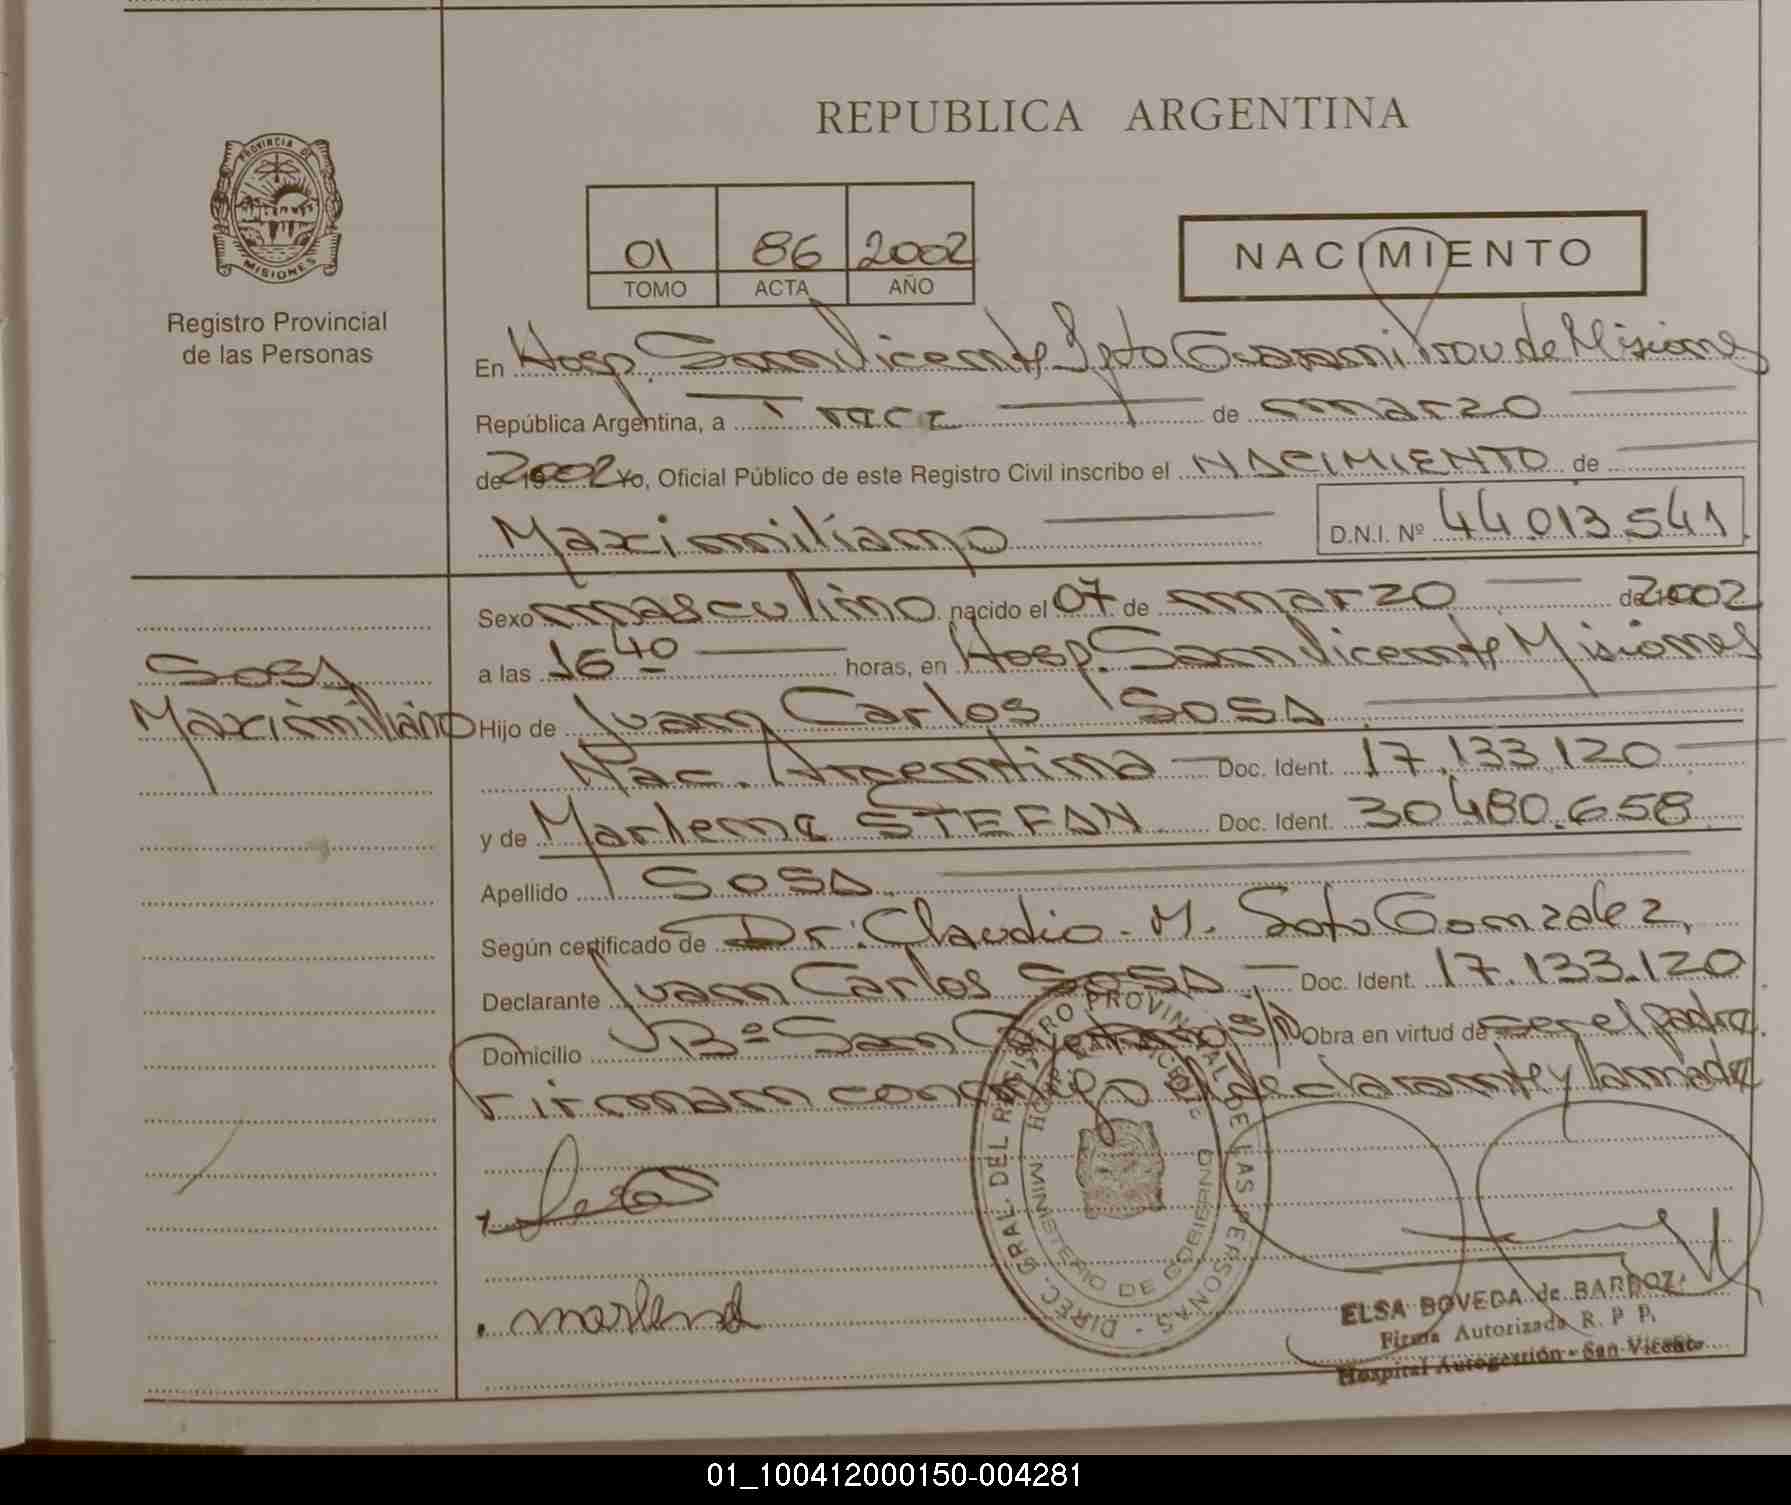 REPUBLICA ARGENTINA
PROVINCIA DE
MISIONES
Registro Provincial
de las Personas
01 86 2002
TOMO ACTA AÑO
NACIMIENTO
En Hosp. San Vicente Dpto Guarani Prov de Misiones
República Argentina, a Trece de marzo
de 2002 Yo, Oficial Público de este Registro Civil inscribo el NACIMIENTO de
Maximiliano D.N.I. Nº 44.013.541
Sexo masculino nacido el 07 de marzo de 2002
a las 16 40 horas, en Hosp. San Vicente Misiones
SOSA
Maximiliano
Hijo de Juan Carlos SOSA
Nac. Argentina Doc. Ident. 17.133.120
y de Marlene STEFAN Doc. Ident. 30.480.658
Apellido SOSA
Según certificado de Dr. Claudio M. Soto Gonzalez,
Declarante Juan Carlos SOSA Doc. Ident. 17.133.120
Domicilio Bº San Cayetano S/N Obra en virtud de ser el padre.
Firman conmigo el declarante y la madre
DIREC. GRAL. DEL REGISTRO PROVINCIAL DE LAS PERSONAS
MINISTERIO DE GOBIERNO
marlene
ELSA BOVEDA de BARBOZA
Firma Autorizada R. P. P.
Hospital Autogestión - San Vicente
01_100412000150-004281